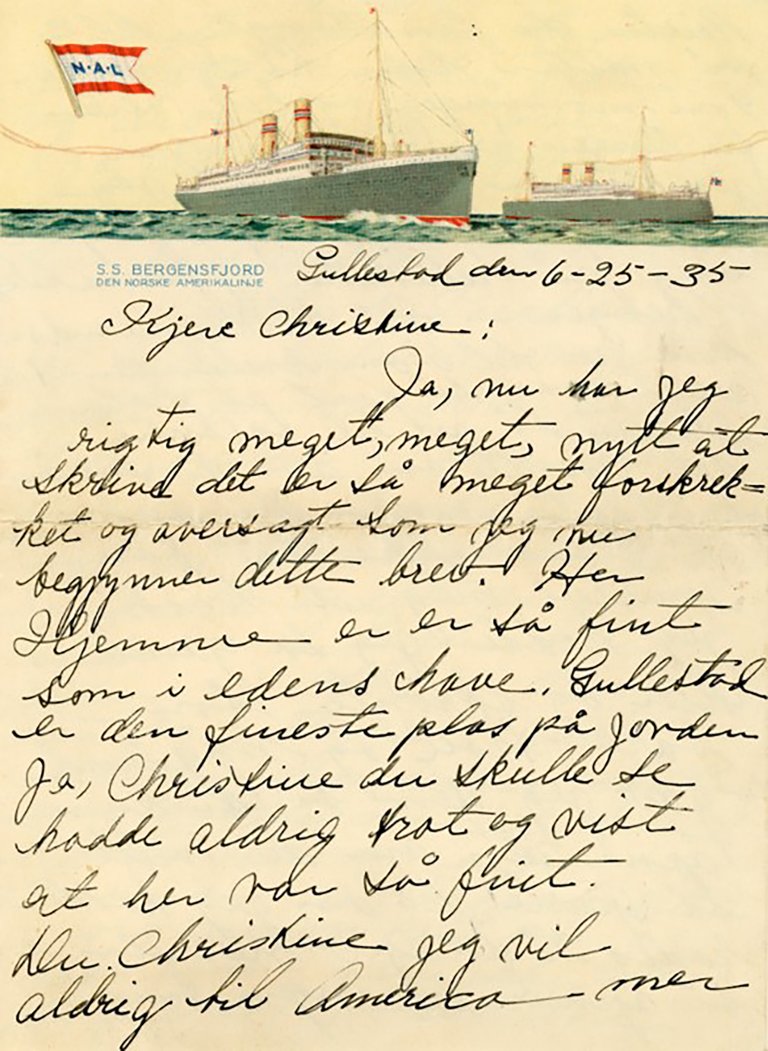 N·A·L
S.S. BERGENSFJORD
DEN NORSKE AMERIKALINJE
Gullestad den 6-25-35
Kjere Christine:
Ja, nu har jeg
rigtig meget, meget, nytt at
skrive det er så meget forskrek=
ket og aversagt som jeg nu
begynner dette brev. Her
Hjemme er er så fint
som i edens have. Gullestad
er den fineste plas på jorden
Ja, Christine du skulle se
hadde aldrig trot og vist
at her var så fint.
Du Christine jeg vil
aldrig til America - mer